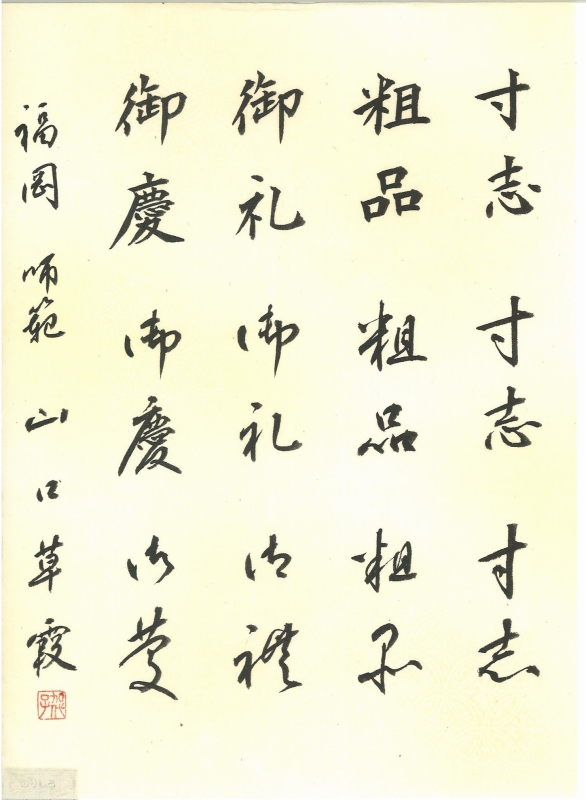 寸志 寸志 寸志
粗品 粗品 粗品
御礼 御礼 御禮
御慶 御慶 御慶
福岡 師範 山口草霞